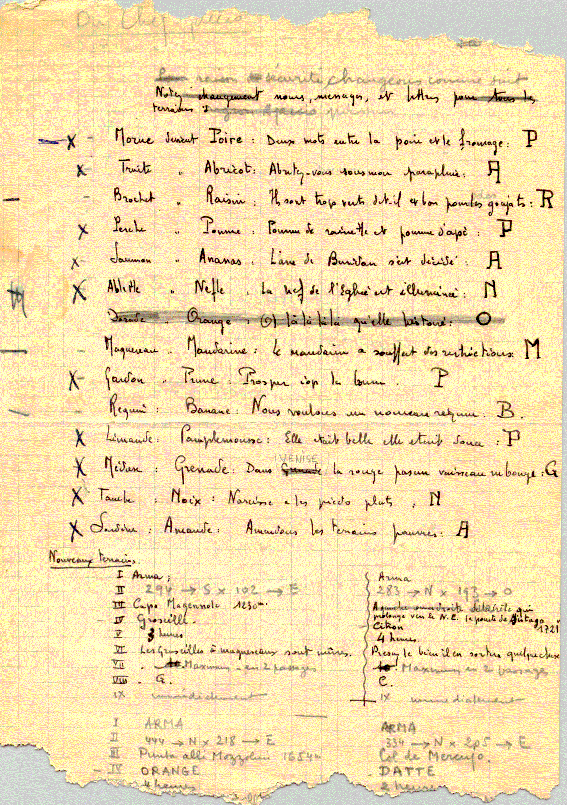 raison sécurité, changeons comme suit
noms, messages, et lettres pour tous les
terrains :
Morue devient Poire : Deux mots entre la poire et le fromage : P
Truite " Abricot : Abritez-vous sous mon parapluie : A
Brochet " Raisin : Ils sont trop verts dit-il et bon pour les goujats : R
Perche " Pomme : Pomme de rainette et pomme d'api : P
Saumon " Ananas : L'âne de Buridan s'est décidé : A
Ablette " Nefle : La nef de l'Eglise est illuminée : N
Dorade " Orange : là là là là qu'elle histoire : O
Maquereau " Mandarine : Le mandarin a souffert des restrictions : M
Gardon " Prune : Prosper P
Requin : Banane : Nous voulons un nouveau requin : B.
Limande : Pamplemousse : Elle était belle elle était douce : P
VENISE
Méduse : Grenade : Dans la rouge pas un vaisseau ne bouge : G
Tanche : Noix : Narcisse a les pieds plats : N
Sardine : Amande : les terrains pauvres : A
Nouveaux terrains.
I Arma :
II 294 → S x 102 → E
III Capo Magennolo 1230m.
IV Groseille.
V 3 heures
VI Les Groseilles à maquereaux sont mûres.
VII Maximum en 2 passages
VIII G.
IX immédiatement
Arma
283 → N x 193 → O
A gauche ou a droite de la côte qui
prolonge vers le N.E. la pointe de 1721
Citron
4 heures.
Pressez le bien il en sortira quelque chose
Maximum en 2 passages
C.
IX immédiatement
I ARMA
II 444 → N x 218 → E
III Punta alli Mozzolini 1654m
IV ORANGE
4 heures
ARMA
334 → N x 205 → E
Col de Mercujo.
DATTE
2 heures